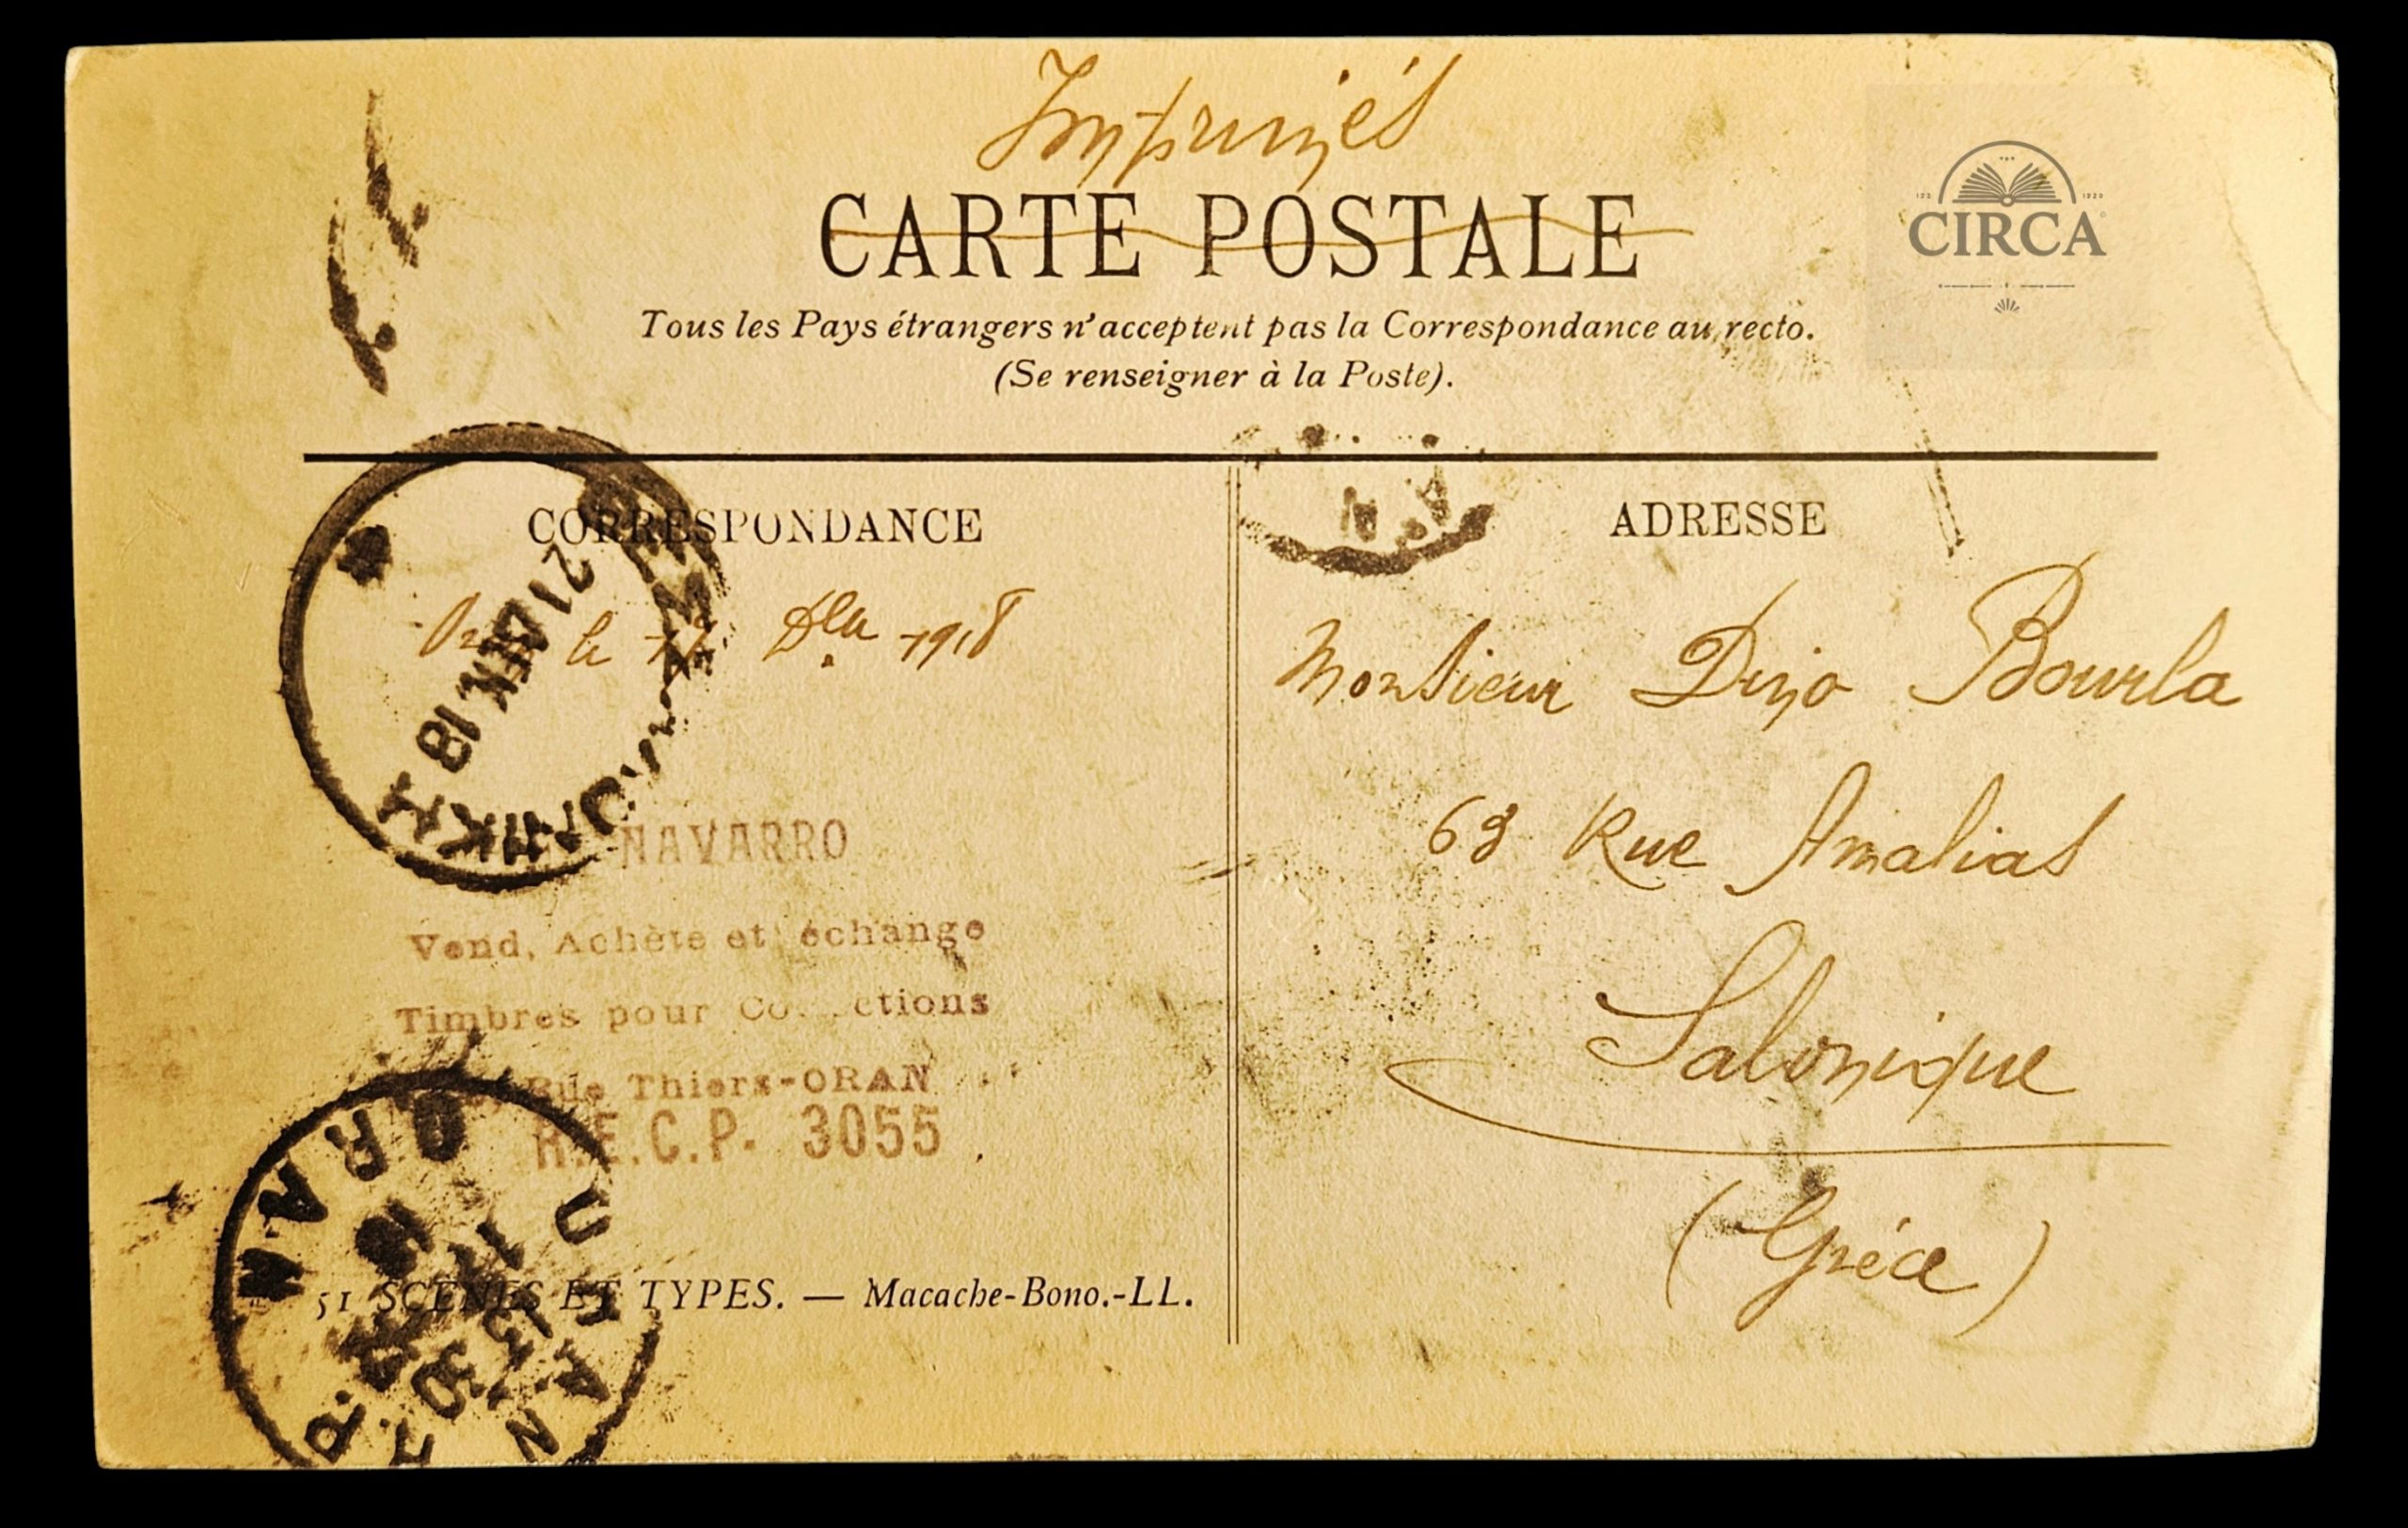 Imprimés
CARTE POSTALE
Tous les Pays étrangers n'acceptent pas la Correspondance au recto.
(Se renseigner à la Poste).
CIRCA
CORRESPONDANCE
le 1918
21 ΔΕΚ 18
NAVARRO
Vend, Achète et échange
Timbres pour
Rue Thiers-ORAN
E.C.P. 3055
ORAN
ORAN
51 SCÈNES ET TYPES. — Macache-Bono.-LL.
ADRESSE
Monsieur Dino Bourla
63 Rue Amalias
Salonique
(Grèce)